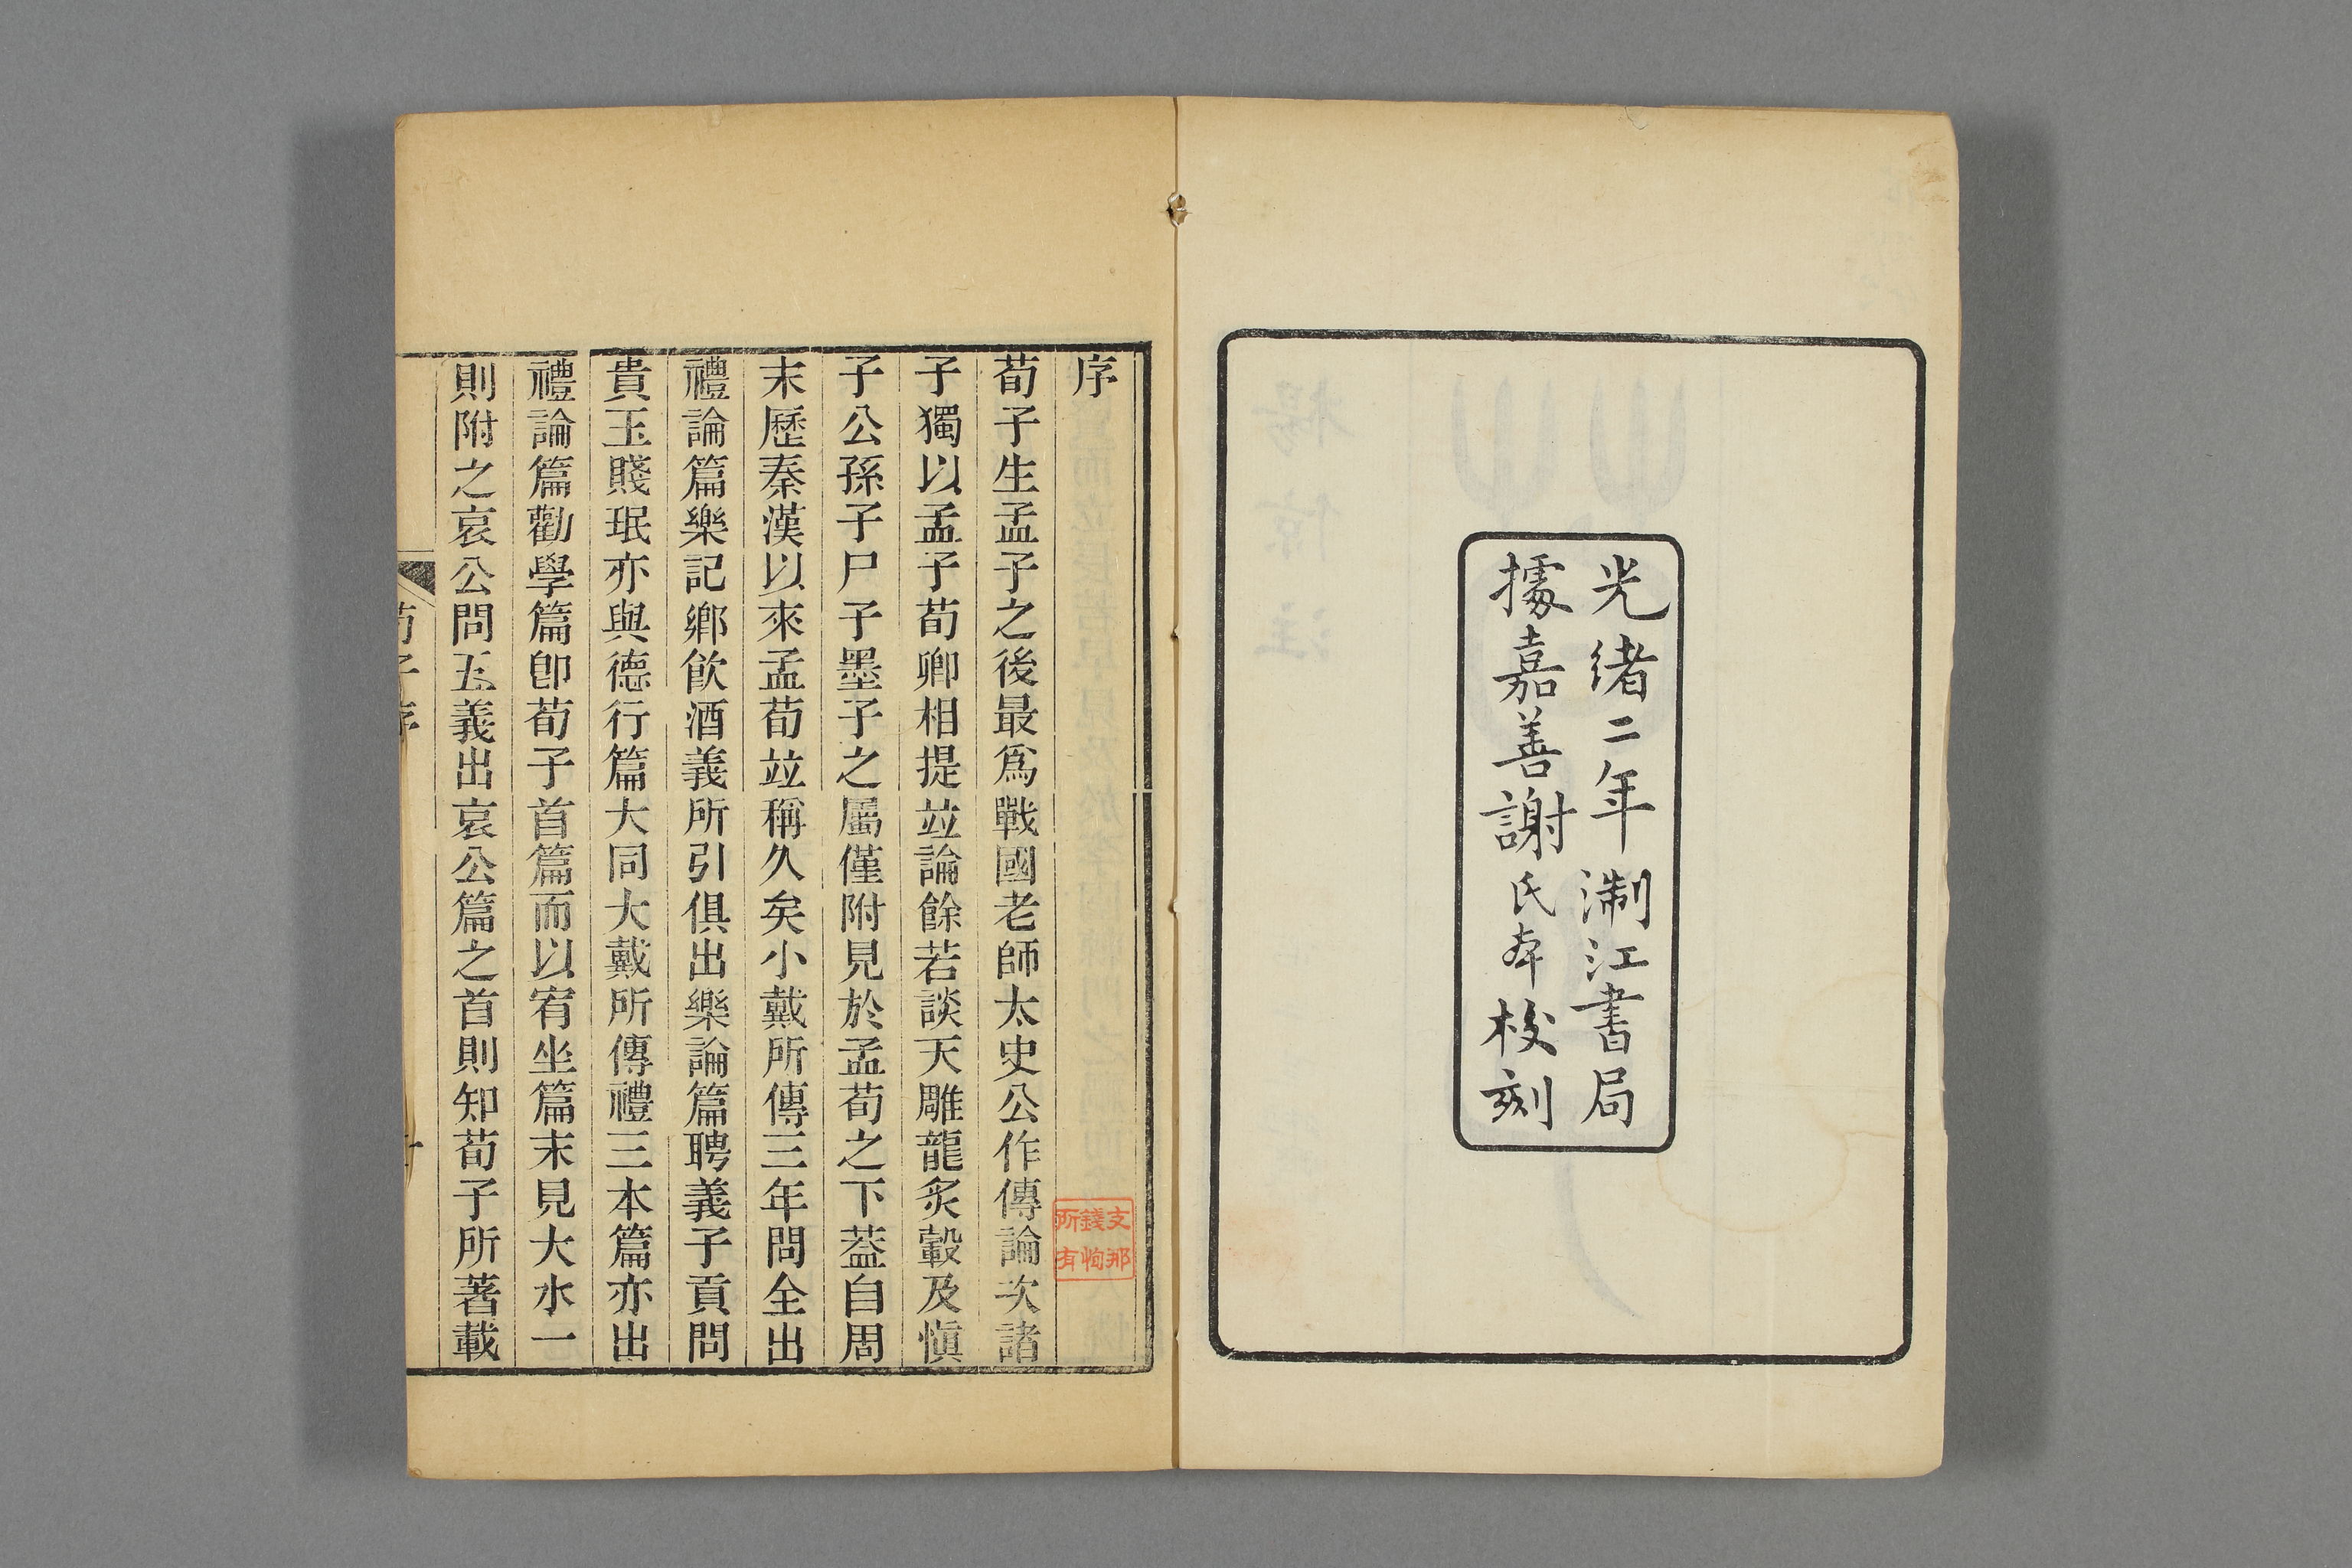 光緒二年浙江書局
據嘉善謝氏本校刻
序
荀子生孟子之後最爲戰國老師太史公作傳論次諸
子獨以孟子荀卿相提竝論餘若談天雕龍炙轂及愼
子公孫子尸子墨子之屬僅附見於孟荀之下葢自周
末歷秦漢以來孟荀竝稱久矣小戴所傳三年問全出
禮論篇樂記鄉飲酒義所引俱出樂論篇聘義子貢問
貴玉賤珉亦與德行篇大同大戴所傳禮三本篇亦出
禮論篇勸學篇卽荀子首篇而以宥坐篇末見大水一
則附之哀公問五義出哀公篇之首則知荀子所著載
荀子序
支那
錢恂
所有